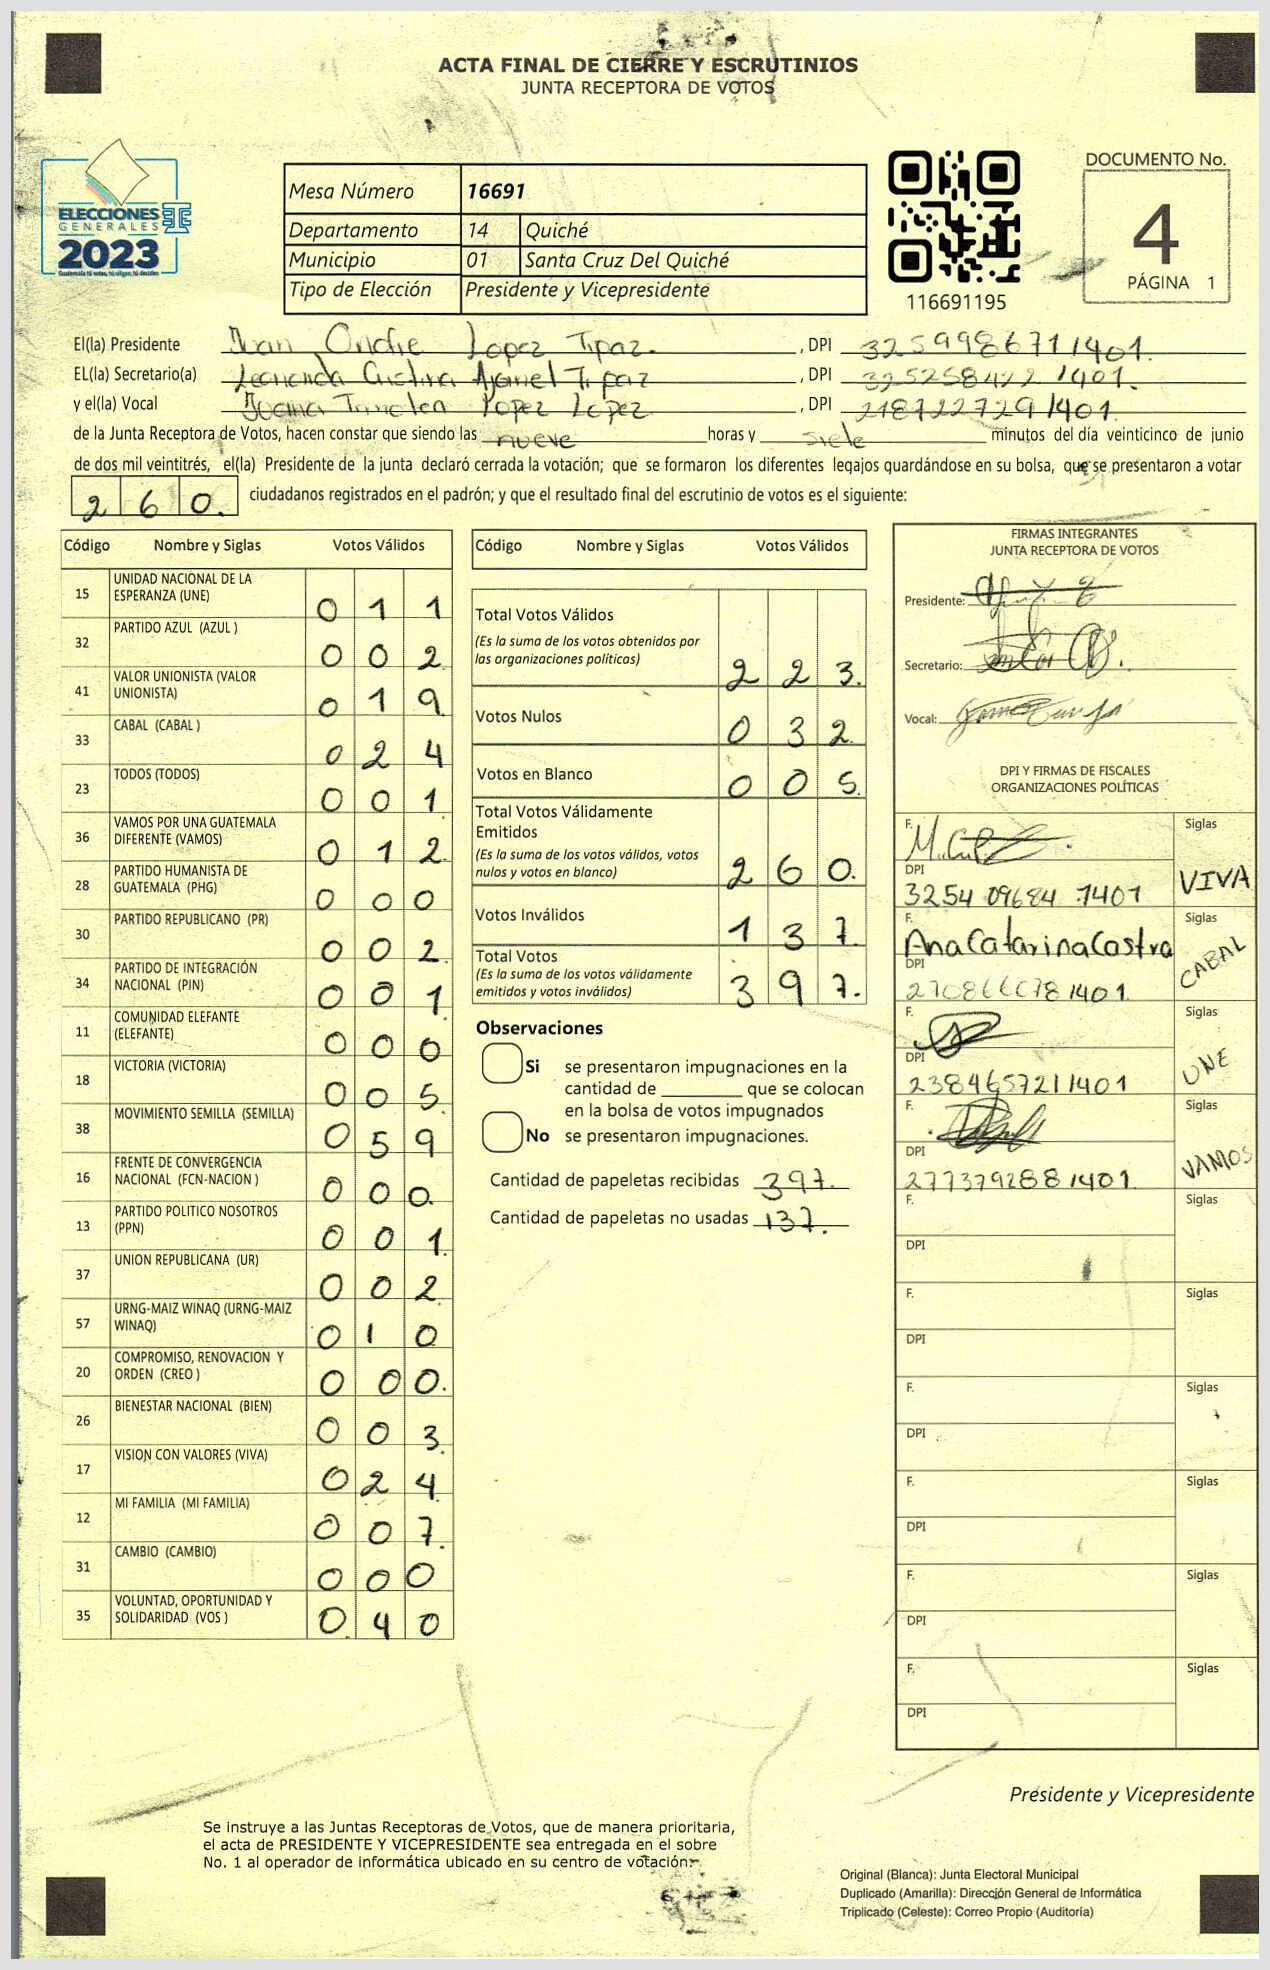 ACTA FINAL DE CIERRE Y ESCRUTINIOS
JUNTA RECEPTORA DE VOTOS
ELECCIONES
GENERALES
2023
Guatemala tú votas, tú eliges, tú decides
Mesa Número 16691
Departamento 14 Quiché
Municipio 01 Santa Cruz Del Quiché
Tipo de Elección Presidente y Vicepresidente
116691195
DOCUMENTO No.
4
PÁGINA 1
El(la) Presidente Juan Lopez Tipaz. , DPI 3259986711401.
EL(la) Secretario(a) Cristina Ajanel Tipaz , DPI 325258422 1401.
y el(la) Vocal Juana Lopez Lopez , DPI 2187227291401.
de la Junta Receptora de Votos, hacen constar que siendo las nueve horas y siete minutos del día veinticinco de junio
de dos mil veintitrés, el(la) Presidente de la junta declaró cerrada la votación; que se formaron los diferentes legajos guardándose en su bolsa, que se presentaron a votar
260. ciudadanos registrados en el padrón; y que el resultado final del escrutinio de votos es el siguiente:
Código Nombre y Siglas Votos Válidos
15 UNIDAD NACIONAL DE LA ESPERANZA (UNE) 0 1 1
32 PARTIDO AZUL (AZUL ) 0 0 2
41 VALOR UNIONISTA (VALOR UNIONISTA) 0 1 9
33 CABAL (CABAL ) 0 2 4
23 TODOS (TODOS) 0 0 1
36 VAMOS POR UNA GUATEMALA DIFERENTE (VAMOS) 0 1 2
28 PARTIDO HUMANISTA DE GUATEMALA (PHG) 0 0 0
30 PARTIDO REPUBLICANO (PR) 0 0 2.
34 PARTIDO DE INTEGRACIÓN NACIONAL (PIN) 0 0 1
11 COMUNIDAD ELEFANTE (ELEFANTE) 0 0 0
18 VICTORIA (VICTORIA) 0 0 5.
38 MOVIMIENTO SEMILLA (SEMILLA) 0 5 9
16 FRENTE DE CONVERGENCIA NACIONAL (FCN-NACION ) 0 0 0.
13 PARTIDO POLITICO NOSOTROS (PPN) 0 0 1.
37 UNION REPUBLICANA (UR) 0 0 2
57 URNG-MAIZ WINAQ (URNG-MAIZ WINAQ) 0 1 0
20 COMPROMISO, RENOVACION Y ORDEN (CREO ) 0 0 0.
26 BIENESTAR NACIONAL (BIEN) 0 0 3.
17 VISION CON VALORES (VIVA) 0 2 4
12 MI FAMILIA (MI FAMILIA) 0 0 7.
31 CAMBIO (CAMBIO) 0 0 0
35 VOLUNTAD, OPORTUNIDAD Y SOLIDARIDAD (VOS ) 0. 4 0
Código Nombre y Siglas Votos Válidos
Total Votos Válidos
(Es la suma de los votos obtenidos por
las organizaciones políticas) 2 2 3.
Votos Nulos 0 3 2.
Votos en Blanco 0 0 5.
Total Votos Válidamente
Emitidos
(Es la suma de los votos válidos, votos
nulos y votos en blanco) 2 6 0.
Votos Inválidos 1 3 7.
Total Votos
(Es la suma de los votos válidamente
emitidos y votos inválidos) 3 9 7.
Observaciones
Si se presentaron impugnaciones en la
cantidad de ________ que se colocan
en la bolsa de votos impugnados
No se presentaron impugnaciones.
Cantidad de papeletas recibidas 397.
Cantidad de papeletas no usadas 137.
FIRMAS INTEGRANTES
JUNTA RECEPTORA DE VOTOS
Presidente:
Secretario:
Vocal:
DPI Y FIRMAS DE FISCALES
ORGANIZACIONES POLÍTICAS
F. Siglas
DPI VIVA
3254 09684 1401
F. Ana Catarina Castro Siglas
DPI CABAL
2708666781401
F. Siglas
DPI UNE
2384657211401
F. Siglas
DPI VAMOS
2773792881401
F. Siglas
DPI
F. Siglas
DPI
F. Siglas
DPI
F. Siglas
DPI
F. Siglas
DPI
F. Siglas
DPI
Presidente y Vicepresidente
Se instruye a las Juntas Receptoras de Votos, que de manera prioritaria,
el acta de PRESIDENTE Y VICEPRESIDENTE sea entregada en el sobre
No. 1 al operador de informática ubicado en su centro de votación.
Original (Blanca): Junta Electoral Municipal
Duplicado (Amarilla): Dirección General de Informática
Triplicado (Celeste): Correo Propio (Auditoría)